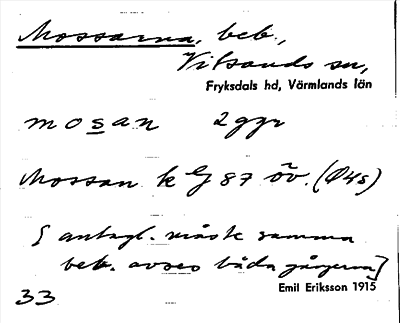 Mossarna, beb.,
Vitsands sn,
Fryksdals hd, Värmlands län
mosan 2 ggr
Mossan k 87 öv. (Ö4s)
[ antagl. måste samma
beb. avses båda gångerna]
Emil Eriksson 1915
33